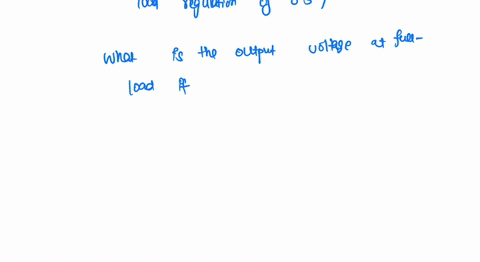 load regulation of
What is the output voltage at full-
load if